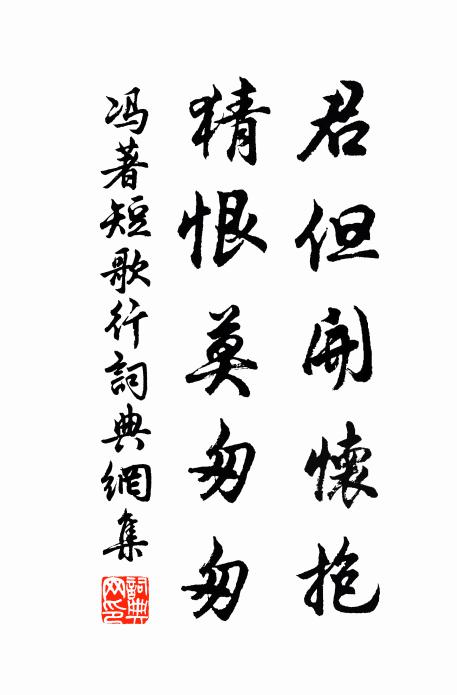 君但開懷抱
猜恨莫匆匆
冯著短歌行詞典網集
詞典网印